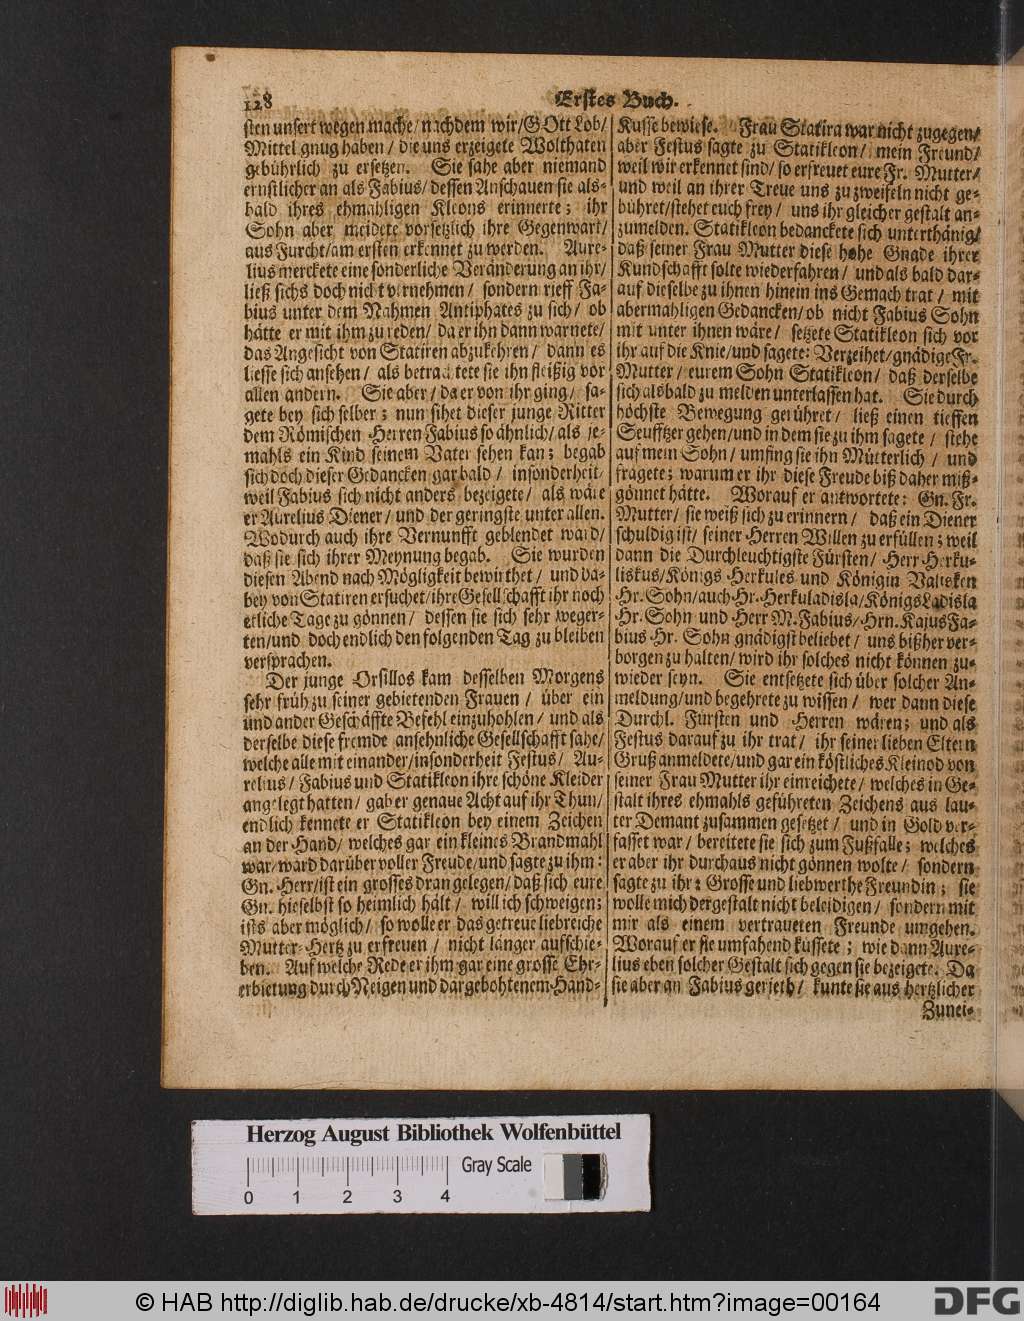 128
Erstes Buch.
sten unsert wegen mache/ nachdem wir/ GOtt Lob/
Mittel gnug haben/ die uns erzeigete Wolthaten
gebührlich zu ersetzen. Sie sahe aber niemand
ernstlicher an als Fabius/ dessen Anschauen sie als-
bald ihres ehmahligen Kleons erinnerte; ihr
Sohn aber meidete vorsetzlich ihre Gegenwart/
aus Furcht/ am ersten erkennet zu werden. Aure-
lius merckete eine sonderliche Veränderung an ihr/
ließ sichs doch nicht vernehmen/ sondern rieff Fa-
bius unter dem Nahmen Antiphates zu sich/ ob
hätte er mit ihm zu reden/ da er ihn dann warnete/
das Angesicht von Statiren abzukehren/ dann es
liesse sich ansehen/ als betrachtete sie ihn fleißig vor
allen andern. Sie aber/ da er von ihr ging/ sa-
gete bey sich selber; nun sihet dieser junge Ritter
dem Römischen Herren Fabius so ähnlich/ als je-
mahls ein Kind seinem Vater sehen kan; begab
sich doch dieser Gedancken gar bald/ insonderheit/
weil Fabius sich nicht anders bezeigete/ als wäre
er Aurelius Diener/ und der geringste unter allen.
Wodurch auch ihre Vernunfft geblendet ward/
daß sie sich ihrer Meynung begab. Sie wurden
diesen Abend nach Mögligkeit bewirthet/ und da-
bey von Statiren ersuchet/ ihre Gesellschafft ihr noch
etliche Tage zu gönnen/ dessen sie sich sehr weger-
ten/ und doch endlich den folgenden Tag zu bleiben
versprachen.
Der junge Orsillos kam desselben Morgens
sehr früh zu seiner gebietenden Frauen/ über ein
und ander Geschäffte Befehl einzuhohlen/ und als
derselbe diese fremde ansehnliche Gesellschafft sahe/
welche alle mit einander/ insonderheit Festus/ Au-
relius/ Fabius und Statikleon ihre schöne Kleider
angelegt hatten/ gab er genaue Acht auf ihr Thun/
endlich kennete er Statikleon bey einem Zeichen
an der Hand/ welches gar ein kleines Brandmahl
war/ ward darüber voller Freude/ und sagte zu ihm:
Gn. Herr/ ist ein grosses dran gelegen/ daß sich eure
Gn. hieselbst so heimlich hält/ will ich schweigen;
ists aber möglich/ so wolle er das getreue liebreiche
Mutter-Hertz zu erfreuen/ nicht länger aufschie-
ben. Auf welche Rede er ihm gar eine grosse Ehr-
erbietung durch Neigen und dargebohtenem Hand-
Kusse bewiese. Frau Statira war nicht zugegen/
aber Festus sagte zu Statikleon/ mein Freund/
weil wir erkennet sind/ so erfreuet eure Fr. Mutter/
und weil an ihrer Treue uns zu zweifeln nicht ge-
bühret/ stehet euch frey/ uns ihr gleicher gestalt an-
zumelden. Statikleon bedanckete sich unterthänig/
daß seiner Frau Mutter diese hohe Gnade ihrer
Kundschafft solte wiederfahren/ und als bald dar-
auf dieselbe zu ihnen hinein ins Gemach trat/ mit
abermahligen Gedancken/ ob nicht Fabius Sohn
mit unter ihnen wäre/ setzete Statikleon sich vor
ihr auf die Knie/ und sagete: Verzeihet/ gnädige Fr.
Mutter/ eurem Sohn Statikleon/ daß derselbe
sich alsbald zu melden unterlassen hat. Sie durch
höchste Bewegung gerühret/ ließ einen tieffen
Seufftzer gehen/ und in dem sie zu ihm sagete/ stehe
auf mein Sohn/ umfing sie ihn Mütterlich/ und
fragete; warum er ihr diese Freude biß daher miß-
gönnet hätte. Worauf er antwortete: Gn. Fr.
Mutter/ sie weiß sich zu erinnern/ daß ein Diener
schuldig ist/ seiner Herren Willen zu erfüllen; weil
dann die Durchleuchtigste Fürsten/ Herr Herku-
liskus/ Königs Herkules und Königin Valisken
Hr. Sohn/ auch Hr. Herkuladisla/ Königs Ladisla
Hr. Sohn und Herr M. Fabius/ Hrn. Kajus Fa-
bius Hr. Sohn gnädigst beliebet/ uns bißher ver-
borgen zu halten/ wird ihr solches nicht können zu-
wieder seyn. Sie entsetzete sich über solcher An-
meldung/ und begehrete zu wissen/ wer dann diese
Durchl. Fürsten und Herren wären; und als
Festus darauf zu ihr trat/ ihr seiner lieben Eltern
Gruß anmeldete/ und gar ein köstliches Kleinod von
seiner Frau Mutter ihr einreichete/ welches in Ge-
stalt ihres ehmahls geführeten Zeichens aus lau-
ter Demant zusammen gesetzet/ und in Gold ver-
fasset war/ bereitete sie sich zum Fußfalle; welches
er aber ihr durchaus nicht gönnen wolte/ sondern
sagte zu ihr: Grosse und liebwerthe Freundin; sie
wolle mich dergestalt nicht beleidigen/ sondern mit
mir als einem vertraueten Freunde umgehen.
Worauf er sie umfahend küssete; wie dann Aure-
lius eben solcher Gestalt sich gegen sie bezeigete. Da
sie aber an Fabius gerieth/ kunte sie aus hertzlicher
Zunei-
Herzog August Bibliothek Wolfenbüttel
Gray Scale
0 1 2 3 4
© HAB http://diglib.hab.de/drucke/xb-4814/start.htm?image=00164
DFG